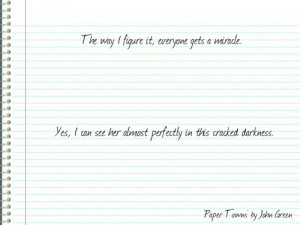 The way I figure it, everyone gets a miracle.
Yes, I can see her almost perfectly in this cracked darkness.
Paper Towns by John Green